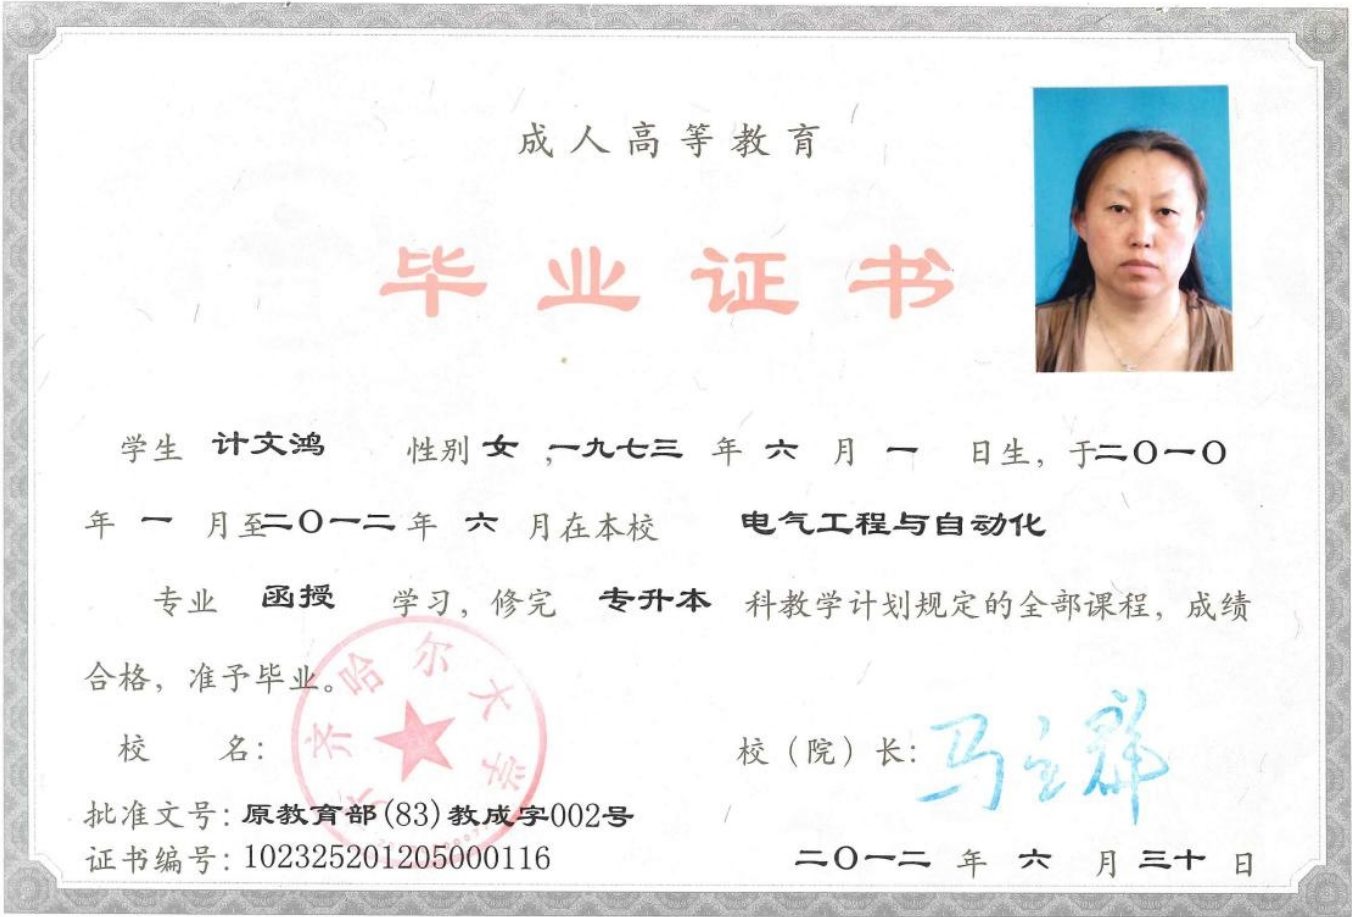 成人高等教育
毕业证书
学生 计文鸿 性别 女 ,一九七三 年 六 月 一 日生，于二〇一〇
年 一 月至二〇一二年 六 月在本校 电气工程与自动化
专业 函授 学习，修完 专升本 科教学计划规定的全部课程，成绩
合格，准予毕业。
齐齐哈尔大学
校 名：
校（院）长：马立群
批准文号：原教育部(83)教成字002号
证书编号：102325201205000116
二〇一二 年 六 月 三十 日